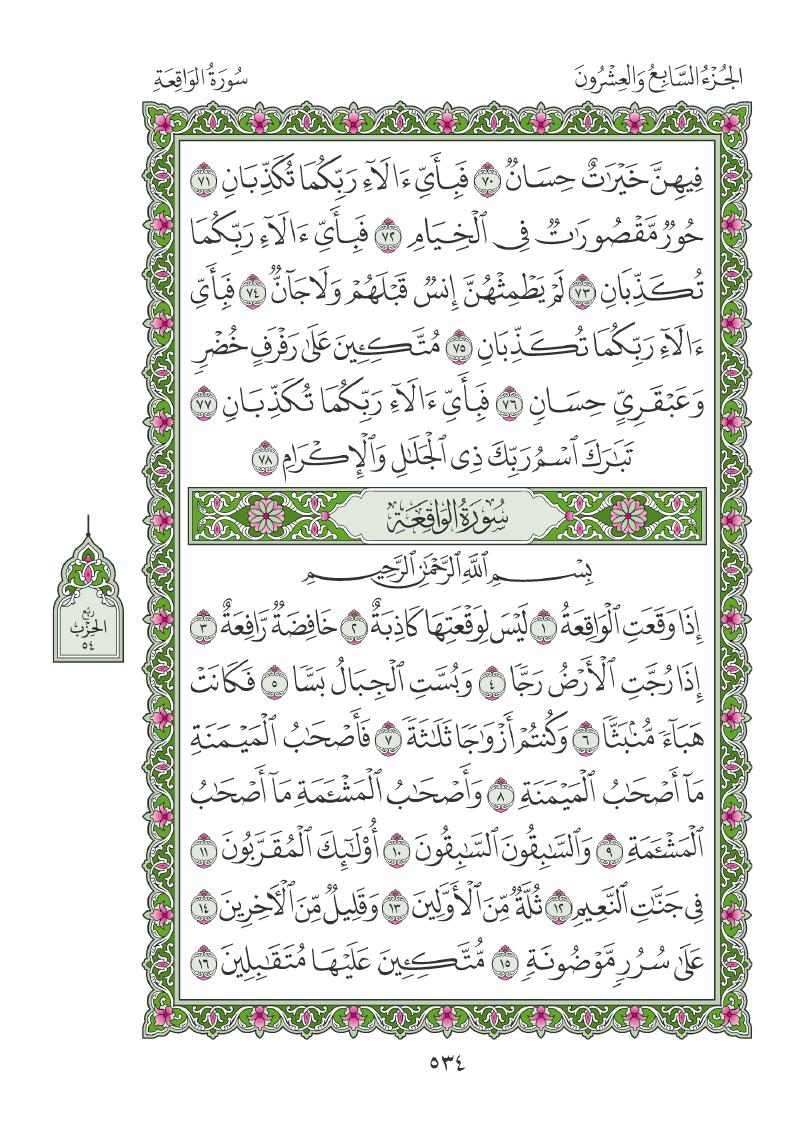 الجُزْءُ السَّابِعُ وَالعِشْرُونَ
سُورَةُ الوَاقِعَةِ
فِيهِنَّ خَيْرَٰتٌ حِسَانٌ ٧٠ فَبِأَيِّ ءَالَآءِ رَبِّكُمَا تُكَذِّبَانِ ٧١
حُورٌ مَّقْصُورَٰتٌ فِى ٱلْخِيَامِ ٧٢ فَبِأَيِّ ءَالَآءِ رَبِّكُمَا
تُكَذِّبَانِ ٧٣ لَمْ يَطْمِثْهُنَّ إِنسٌ قَبْلَهُمْ وَلَا جَآنٌّ ٧٤ فَبِأَيِّ
ءَالَآءِ رَبِّكُمَا تُكَذِّبَانِ ٧٥ مُتَّكِـِٔينَ عَلَىٰ رَفْرَفٍ خُضْرٍ
وَعَبْقَرِىٍّ حِسَانٍ ٧٦ فَبِأَيِّ ءَالَآءِ رَبِّكُمَا تُكَذِّبَانِ ٧٧
تَبَٰرَكَ ٱسْمُ رَبِّكَ ذِى ٱلْجَلَٰلِ وَٱلْإِكْرَامِ ٧٨
سُورَةُ الوَاقِعَةِ
بِسْمِ ٱللَّهِ ٱلرَّحْمَٰنِ ٱلرَّحِيمِ
إِذَا وَقَعَتِ ٱلْوَاقِعَةُ ١ لَيْسَ لِوَقْعَتِهَا كَاذِبَةٌ ٢ خَافِضَةٌ رَّافِعَةٌ ٣
إِذَا رُجَّتِ ٱلْأَرْضُ رَجًّا ٤ وَبُسَّتِ ٱلْجِبَالُ بَسًّا ٥ فَكَانَتْ
هَبَآءً مُّنۢبَثًّا ٦ وَكُنتُمْ أَزْوَٰجًا ثَلَٰثَةً ٧ فَأَصْحَٰبُ ٱلْمَيْمَنَةِ
مَآ أَصْحَٰبُ ٱلْمَيْمَنَةِ ٨ وَأَصْحَٰبُ ٱلْمَشْـَٔمَةِ مَآ أَصْحَٰبُ
ٱلْمَشْـَٔمَةِ ٩ وَٱلسَّٰبِقُونَ ٱلسَّٰبِقُونَ ١٠ أُو۟لَٰٓئِكَ ٱلْمُقَرَّبُونَ ١١
فِى جَنَّٰتِ ٱلنَّعِيمِ ١٢ ثُلَّةٌ مِّنَ ٱلْأَوَّلِينَ ١٣ وَقَلِيلٌ مِّنَ ٱلْءَاخِرِينَ ١٤
عَلَىٰ سُرُرٍ مَّوْضُونَةٍ ١٥ مُّتَّكِـِٔينَ عَلَيْهَا مُتَقَٰبِلِينَ ١٦
رُبع
الحِزْب
٥٤
٥٣٤